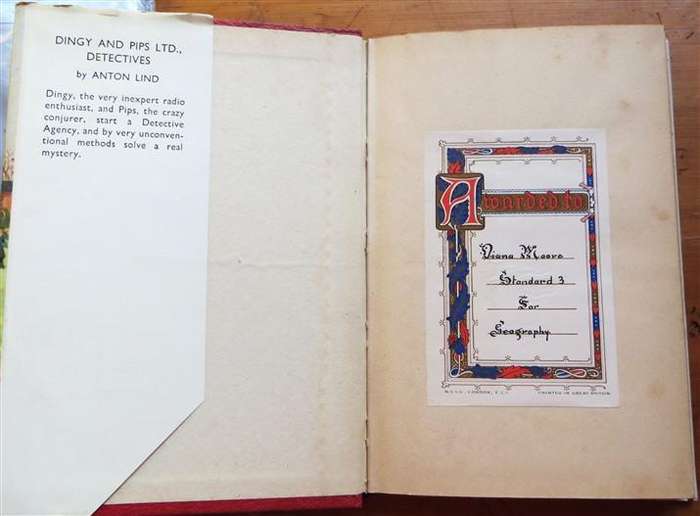 DINGY AND PIPS LTD.,
DETECTIVES
by ANTON LIND
Dingy, the very inexpert radio
enthusiast, and Pips, the crazy
conjurer, start a Detective
Agency, and by very unconven-
tional methods solve a real
mystery.
Awarded to
Diana Moore
Standard 3
For
Geography
LONDON, E.C.1
PRINTED IN GREAT BRITAIN